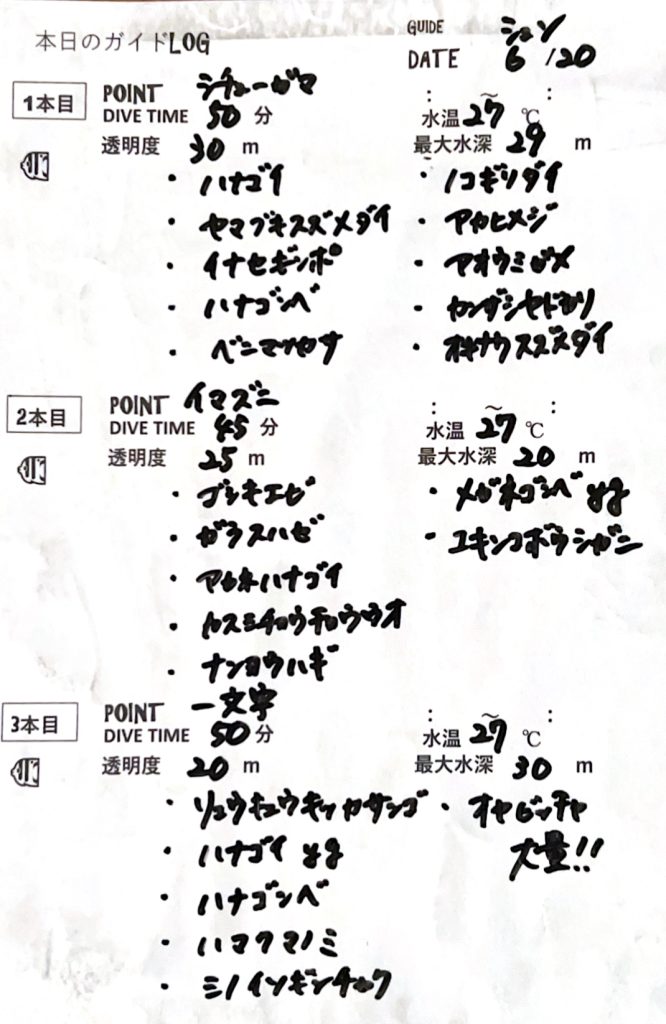 本日のガイドLOG
GUIDE シュン
DATE 6/20
1本目
POINT シチューガマ
DIVE TIME 50分
: ~ :
水温 27℃
透明度 30m
最大水深 29m
・ハナゴイ
・ヤマブキスズメダイ
・イナセギンポ
・ハナゴンベ
・ベニマツカサ
・ノコギリダイ
・アカヒメジ
・アオウミガメ
・カンザシヤドカリ
・オキナワスズメダイ
2本目
POINT イマズニ
DIVE TIME 45分
: ~ :
水温 27℃
透明度 25m
最大水深 20m
・ゴシキエビ
・ガラスハゼ
・アカネハナゴイ
・カスミチョウチョウウオ
・ナンヨウハギ
・メガネゴンベ yg
・ユキンコボウシガニ
3本目
POINT 一文字
DIVE TIME 50分
: ~ :
水温 27℃
透明度 20m
最大水深 30m
・リュウキュウキッカサンゴ
・ハナゴイ yg
・ハナゴンベ
・ハマクマノミ
・ミノイソギンチャク
・オヤビッチャ
大量!!